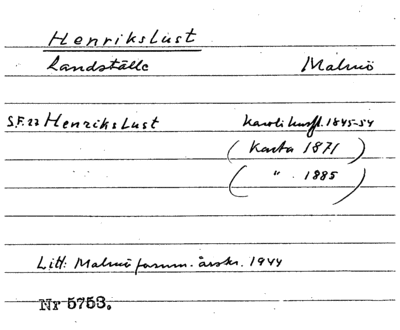 Henrikslust
Landställe Malmö
S.F.22 Henrikslust Karoli husfl. 1845-54
( Karta 1871 )
( " . 1885 )
Litt: Malmö fornm. årskr. 1944
Nr 5753.